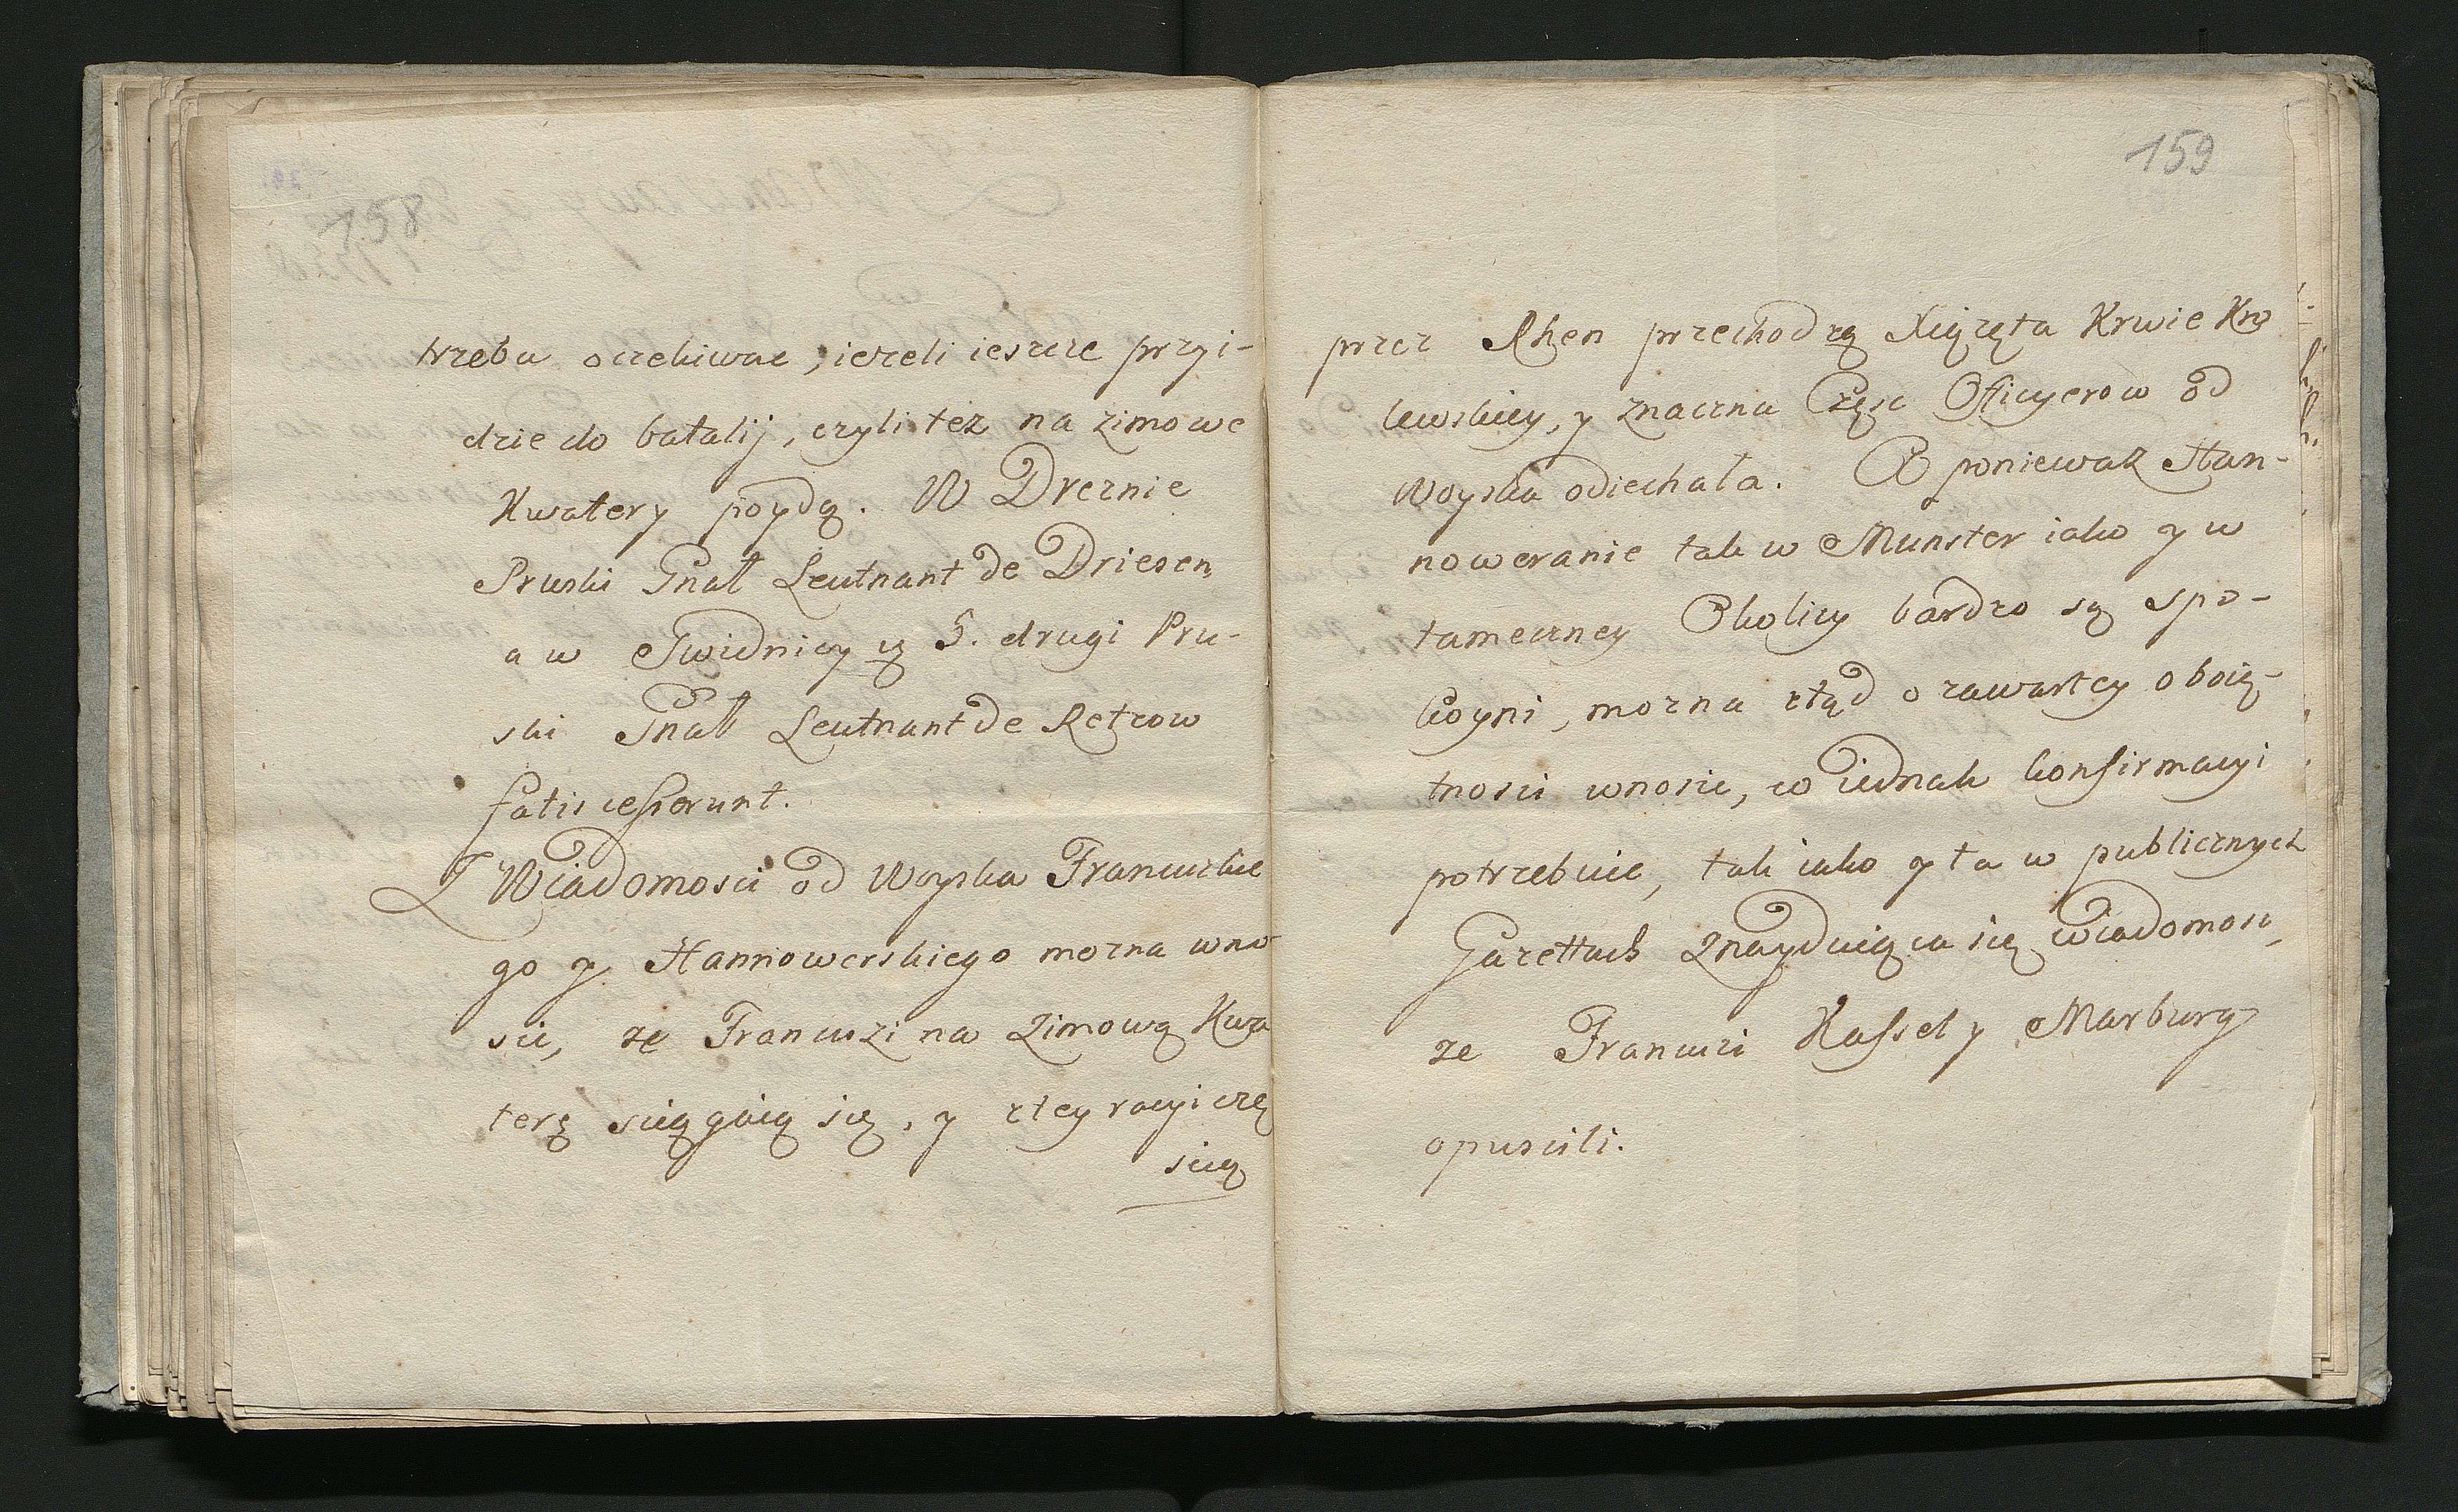 158
trzeba oczekiwac, iezeli ieszcze przyi-
dzie do batalij, czyli tez na zimowe
Kwatery poydą. W Dreznie
Pruski Gnał Leutnant de Driesen,
a w Swidnicy 5. drugi Pru-
ski Gnał Leutnant de Retzow
fatis cesserunt.
Z Wiadomosci od Woyska Francuzkie
go y Hannowerskiego mozna wno-
sic, ze Francuzi na Zimową Kwa
terę sciągaią się, y z tey racyi czę
scią
159
przez Rhen przechodzą Xiązęta Krwie Kro
lewskiey, y znaczna Częsc Oficyerow od
Woyska odiechała. A poniewaz Han-
noweranie tak w Munster iako y w
tameczney Okolicy bardzo są spo-
koyni, mozna ztąd o zawartey oboię-
tnosci wnosic, co iednak konfirmacyi
potrzebuie, tak iako y ta w publicznych
Gazettach znayduiąca się wiadomosc,
ze Francuzi Kassel y Marburg
opuscili.